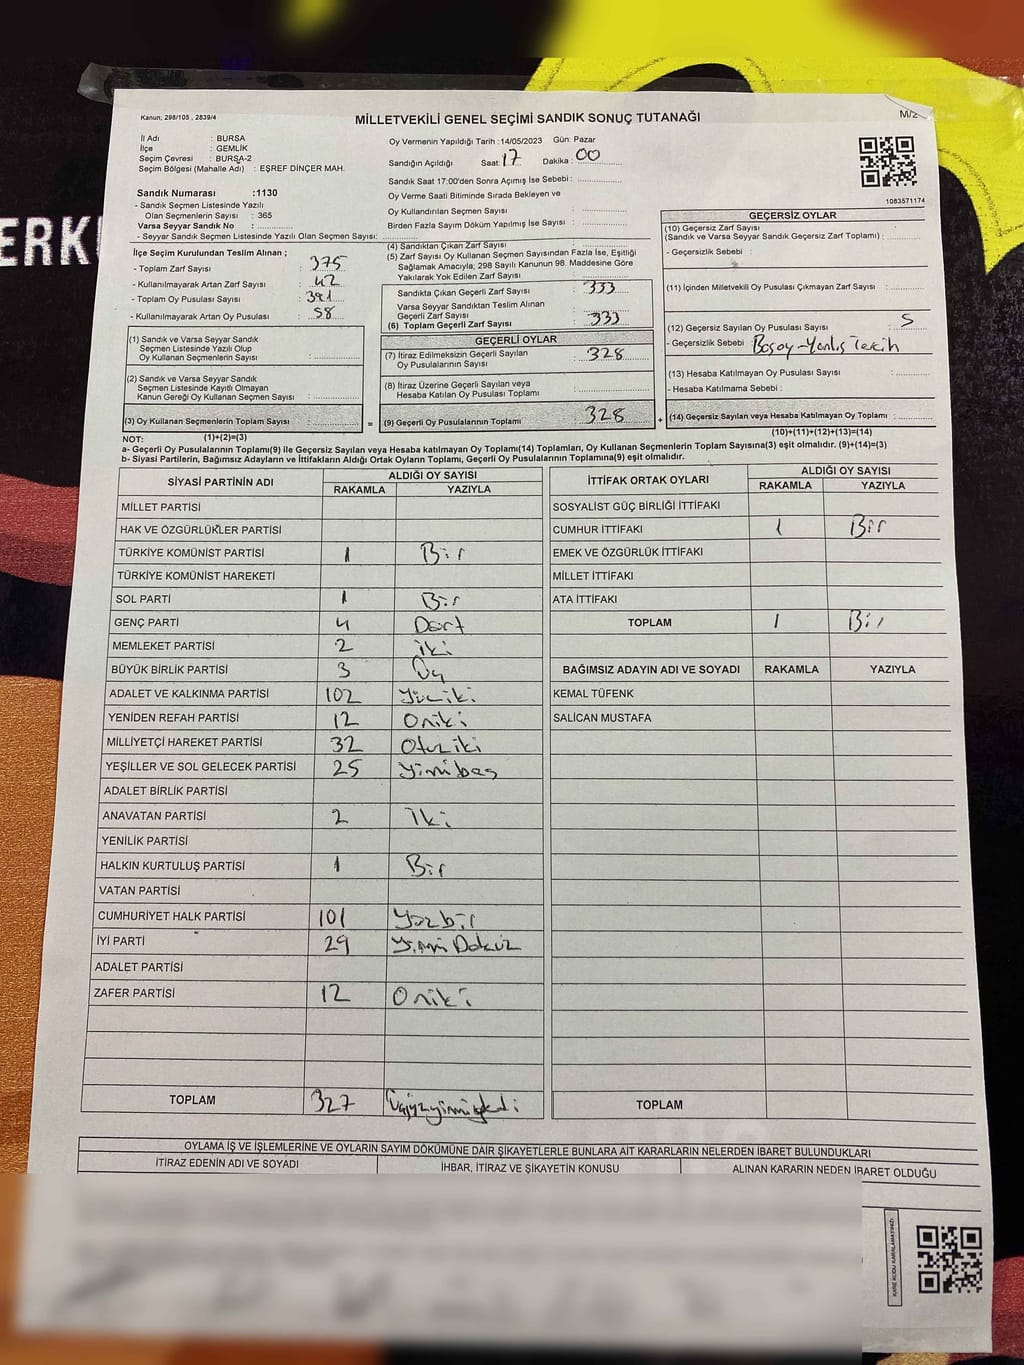 ERK
Kanun; 298/105 , 2839/4
MİLLETVEKİLİ GENEL SEÇİMİ SANDIK SONUÇ TUTANAĞI
M/2
İl Adı : BURSA
İlçe : GEMLİK
Seçim Çevresi : BURSA-2
Seçim Bölgesi (Mahalle Adı) : EŞREF DİNÇER MAH.
Oy Vermenin Yapıldığı Tarih : 14/05/2023 Gün: Pazar
Sandığın Açıldığı Saat: 17 Dakika : 00
Sandık Saat 17:00'den Sonra Açımış İse Sebebi :
Oy Verme Saati Bitiminde Sırada Bekleyen ve
Oy Kullandırılan Seçmen Sayısı :
Birden Fazla Sayım Döküm Yapılmış İse Sayısı :
1083571174
Sandık Numarası :1130
- Sandık Seçmen Listesinde Yazılı
Olan Seçmenlerin Sayısı : 365
Varsa Seyyar Sandık No :
- Seyyar Sandık Seçmen Listesinde Yazılı Olan Seçmen Sayısı:
İlçe Seçim Kurulundan Teslim Alınan ;
- Toplam Zarf Sayısı : 375
- Kullanılmayarak Artan Zarf Sayısı : 42
- Toplam Oy Pusulası Sayısı : 391
- Kullanılmayarak Artan Oy Pusulası : 58
(1) Sandık ve Varsa Seyyar Sandık
Seçmen Listesinde Yazılı Olup
Oy Kullanan Seçmenlerin Sayısı :
(2) Sandık ve Varsa Seyyar Sandık
Seçmen Listesinde Kayıtlı Olmayan
Kanun Gereği Oy Kullanan Seçmen Sayısı :
(3) Oy Kullanan Seçmenlerin Toplam Sayısı :
(1)+(2)=(3)
(4) Sandıktan Çıkan Zarf Sayısı :
(5) Zarf Sayısı Oy Kullanan Seçmen Sayısından Fazla İse, Eşitliği
Sağlamak Amacıyla; 298 Sayılı Kanunun 98. Maddesine Göre
Yakılarak Yok Edilen Zarf Sayısı :
Sandıkta Çıkan Geçerli Zarf Sayısı : 333
Varsa Seyyar Sandıktan Teslim Alınan
Geçerli Zarf Sayısı :
(6) Toplam Geçerli Zarf Sayısı : 333
GEÇERLİ OYLAR
(7) İtiraz Edilmeksizin Geçerli Sayılan
Oy Pusulalarının Sayısı : 328
(8) İtiraz Üzerine Geçerli Sayılan veya
Hesaba Katılan Oy Pusulası Toplamı :
= (9) Geçerli Oy Pusulalarının Toplamı : 328 +
GEÇERSİZ OYLAR
(10) Geçersiz Zarf Sayısı
(Sandık ve Varsa Seyyar Sandık Geçersiz Zarf Toplamı) :
- Geçersizlik Sebebi :
(11) İçinden Milletvekili Oy Pusulası Çıkmayan Zarf Sayısı :
(12) Geçersiz Sayılan Oy Pusulası Sayısı : 5
- Geçersizlik Sebebi : Boşoy-Yanlış Tercih
(13) Hesaba Katılmayan Oy Pusulası Sayısı :
- Hesaba Katılmama Sebebi :
(14) Geçersiz Sayılan veya Hesaba Katılmayan Oy Toplamı :
(10)+(11)+(12)+(13)=(14)
NOT:
a- Geçerli Oy Pusulalarının Toplamı(9) ile Geçersiz Sayılan veya Hesaba katılmayan Oy Toplamı(14) Toplamları, Oy Kullanan Seçmenlerin Toplam Sayısına(3) eşit olmalıdır. (9)+(14)=(3)
b- Siyasi Partilerin, Bağımsız Adayların ve İttifakların Aldığı Ortak Oyların Toplamı, Geçerli Oy Pusulalarının Toplamına(9) eşit olmalıdır.
SİYASİ PARTİNİN ADI ALDIĞI OY SAYISI
RAKAMLA YAZIYLA
MİLLET PARTİSİ
HAK VE ÖZGÜRLÜKLER PARTİSİ
TÜRKİYE KOMÜNİST PARTİSİ 1 Bir
TÜRKİYE KOMÜNİST HAREKETİ
SOL PARTİ 1 Bir
GENÇ PARTİ 4 Dört
MEMLEKET PARTİSİ 2 iki
BÜYÜK BİRLİK PARTİSİ 3 Üç
ADALET VE KALKINMA PARTİSİ 102 Yüziki
YENİDEN REFAH PARTİSİ 12 Oniki
MİLLİYETÇİ HAREKET PARTİSİ 32 Otuziki
YEŞİLLER VE SOL GELECEK PARTİSİ 25 Yirmibeş
ADALET BİRLİK PARTİSİ
ANAVATAN PARTİSİ 2 İki
YENİLİK PARTİSİ
HALKIN KURTULUŞ PARTİSİ 1 Bir
VATAN PARTİSİ
CUMHURİYET HALK PARTİSİ 101 Yüzbir
İYİ PARTİ 29 Yirmi Dokuz
ADALET PARTİSİ
ZAFER PARTİSİ 12 Oniki
TOPLAM 327 Üçyüzyirmiyedi
İTTİFAK ORTAK OYLARI ALDIĞI OY SAYISI
RAKAMLA YAZIYLA
SOSYALİST GÜÇ BİRLİĞİ İTTİFAKI
CUMHUR İTTİFAKI 1 Bir
EMEK VE ÖZGÜRLÜK İTTİFAKI
MİLLET İTTİFAKI
ATA İTTİFAKI
TOPLAM 1 Bir
BAĞIMSIZ ADAYIN ADI VE SOYADI RAKAMLA YAZIYLA
KEMAL TÜFENK
SALİCAN MUSTAFA
TOPLAM
OYLAMA İŞ VE İŞLEMLERİNE VE OYLARIN SAYIM DÖKÜMÜNE DAİR ŞİKAYETLERLE BUNLARA AİT KARARLARIN NELERDEN İBARET BULUNDUKLARI
İTİRAZ EDENİN ADI VE SOYADI İHBAR, İTİRAZ VE ŞİKAYETİN KONUSU ALINAN KARARIN NEDEN İBARET OLDUĞU
KARE KODU KARALAMAYINIZ!